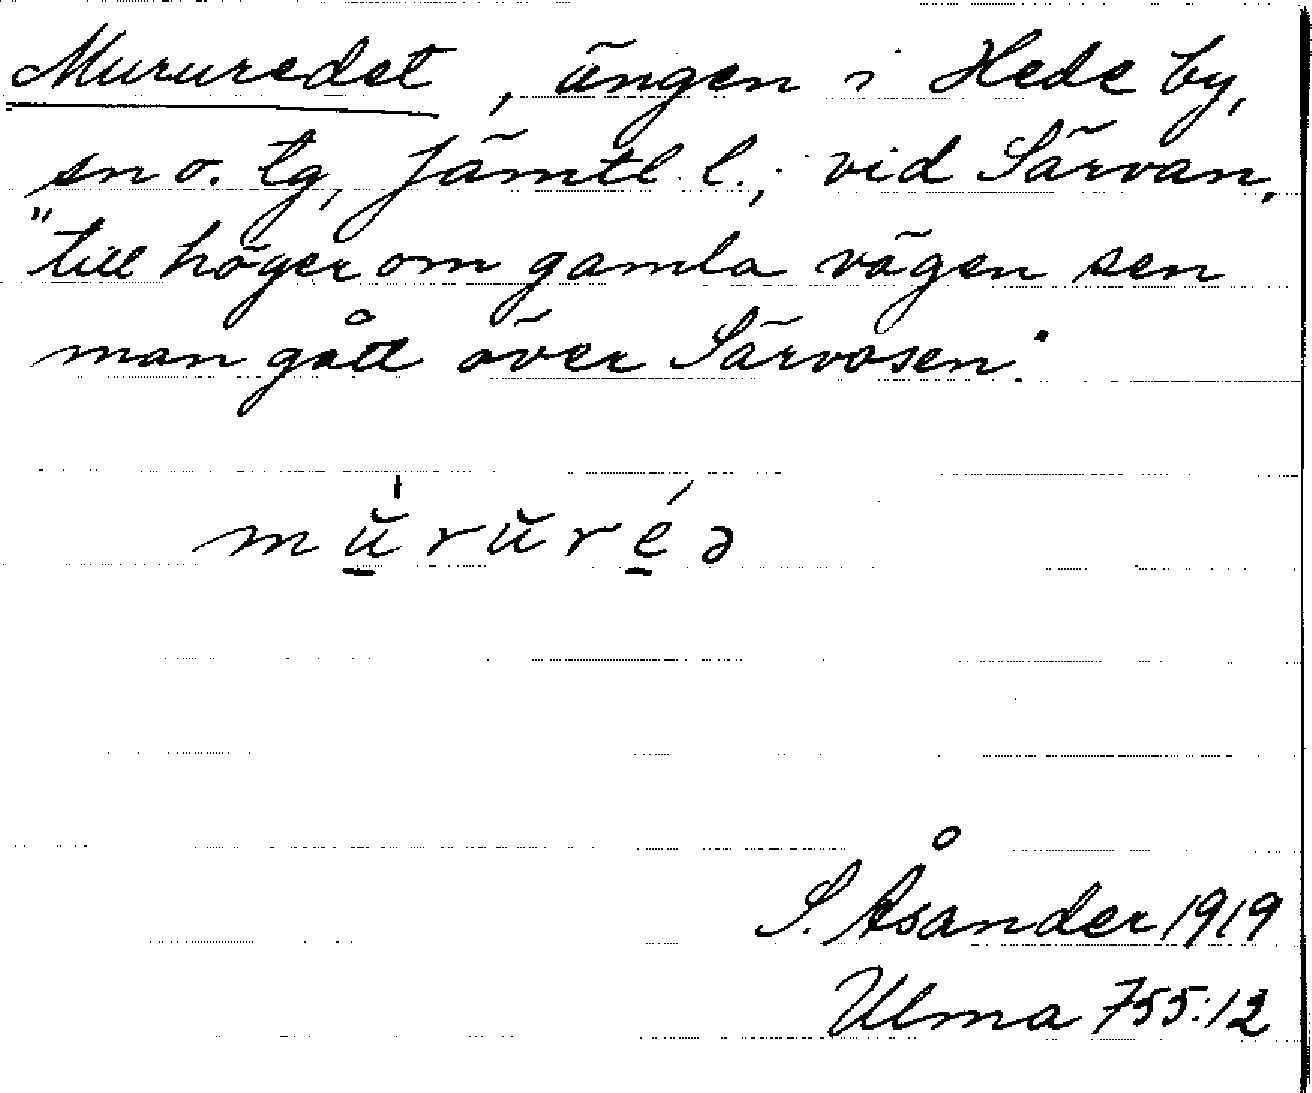 Mururedet, ängen i Hede by,
sn o. tg, Jämtl. l.; vid Särvan,
"till höger om gamla vägen sen
man gått över Särvosen".
mu̱̍rŭré̱ə
S. Åsander 1919
Ulma 755:12